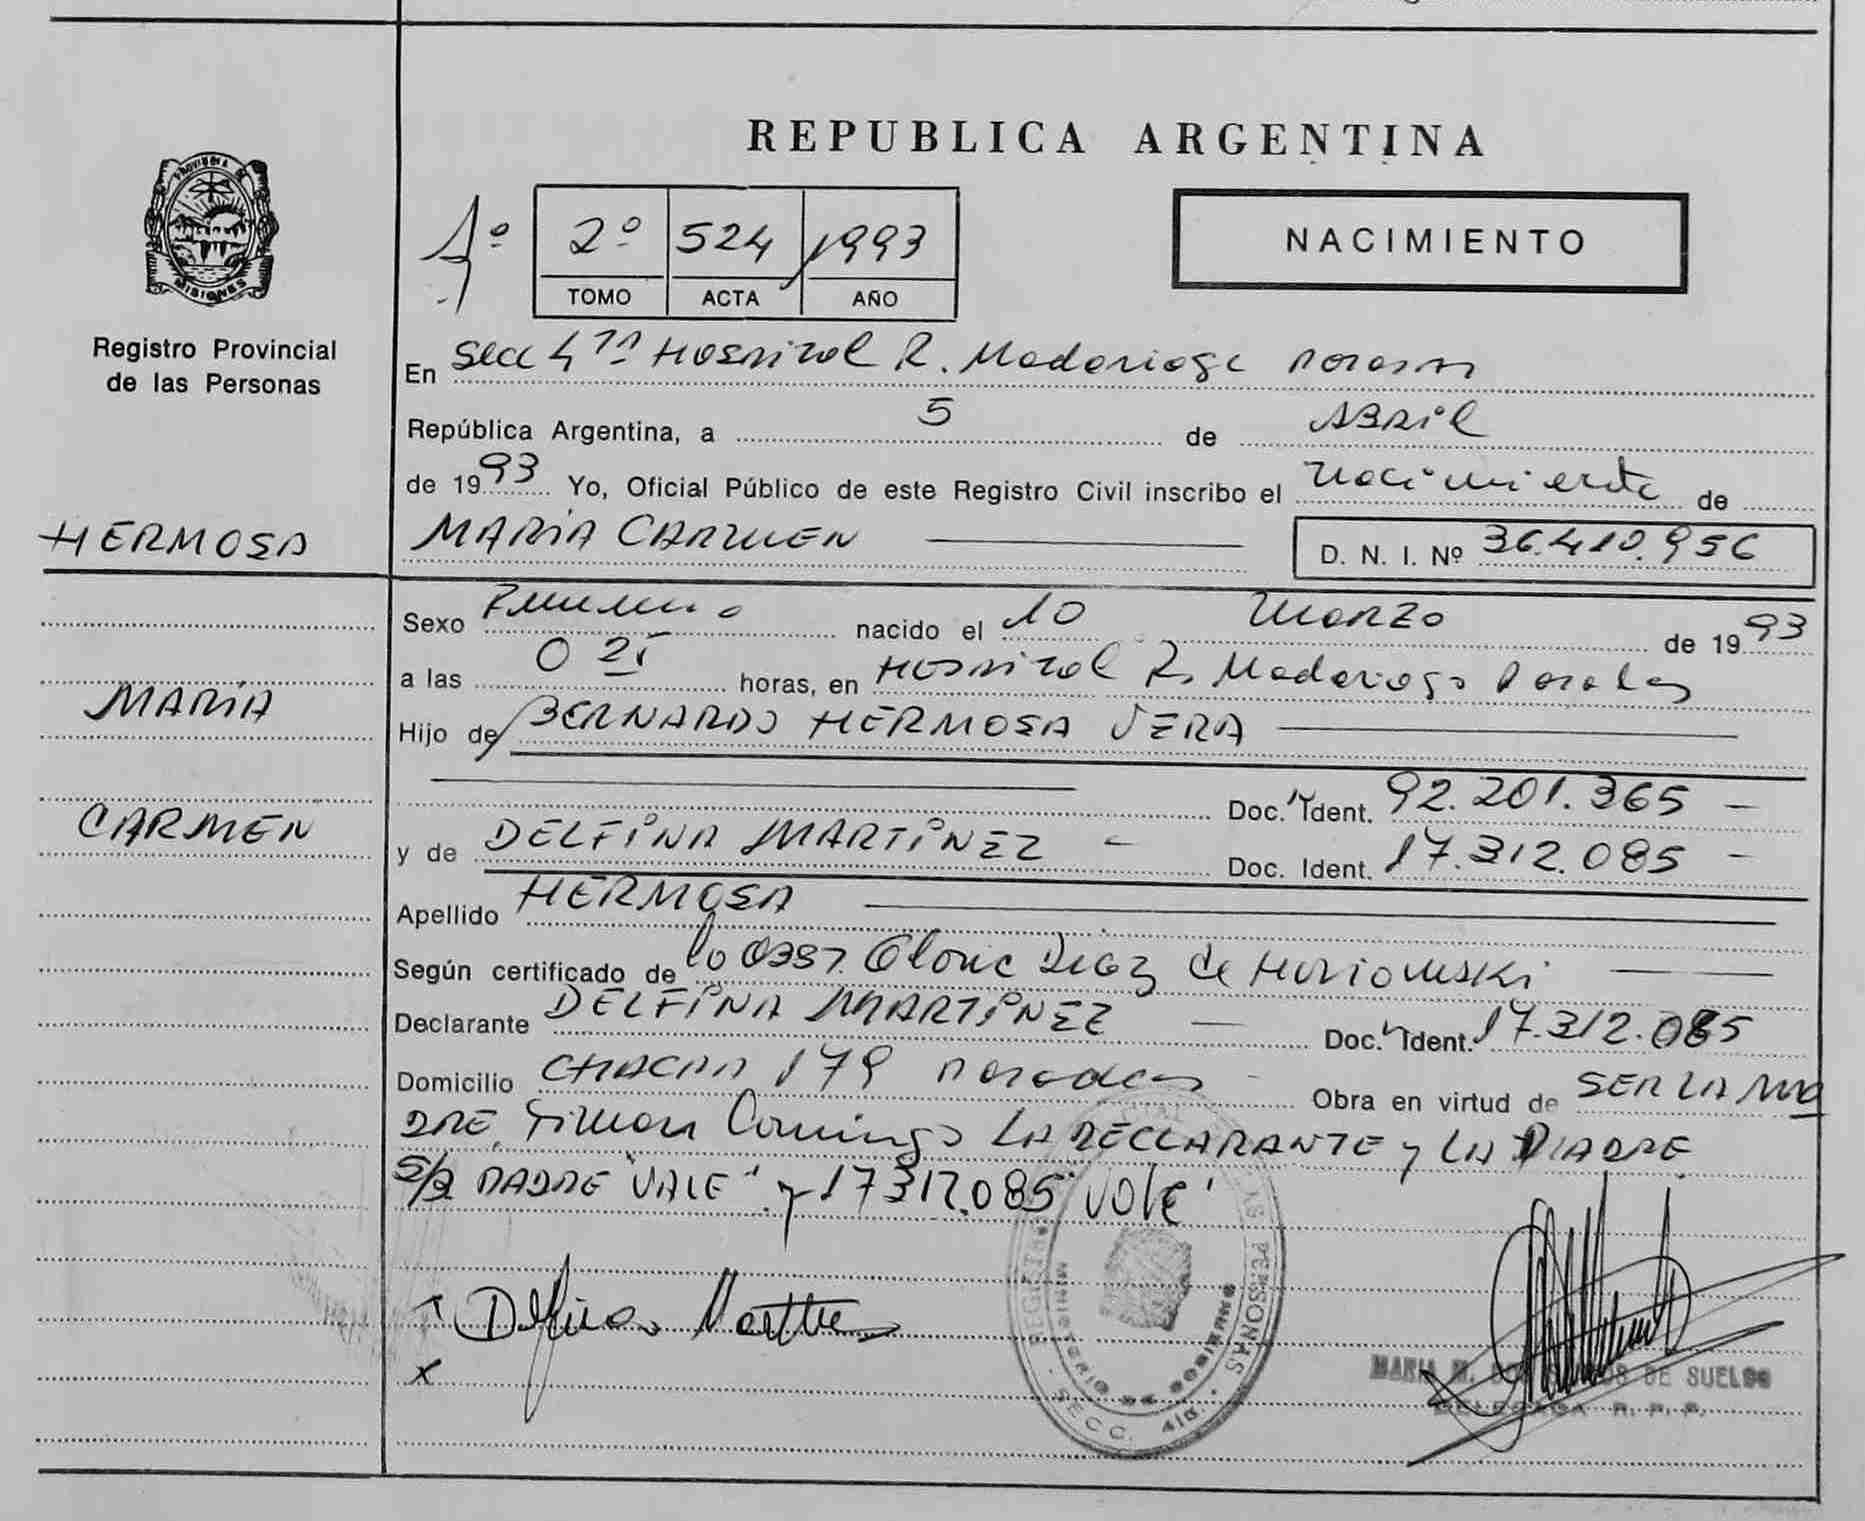 REPUBLICA ARGENTINA
PROVINCIA DE MISIONES
Registro Provincial
de las Personas
1º 2º 524 1993
TOMO ACTA AÑO
NACIMIENTO
En Secc 4ta Hospital R. Madariaga Posadas
República Argentina, a 5 de ABRIL
de 1993 Yo, Oficial Público de este Registro Civil inscribo el nacimiento de
HERMOSA
MARIA CARMEN
D. N. I. Nº 36.410.956
Sexo Femenino nacido el 10 Marzo de 1993
a las 0 25 horas, en Hospital R. Madariaga Posadas
MARIA
Hijo de BERNARDO HERMOSA VERA
Doc. Ident. 92.201.365 –
CARMEN
y de DELFINA MARTINEZ – Doc. Ident. 17.312.085 –
Apellido HERMOSA
Según certificado de Diaz de
Declarante DELFINA MARTINEZ — Doc. Ident. 17.312.085
Domicilio CHACRA 179 Posadas – Obra en virtud de SER LA MA
DRE. Firman LA DECLARANTE y LA MADRE
S/R PADRE "VALE" y 17312.085 "VALE"
x Delfina Martinez
x
REGISTRO PERSONAS
MINISTERIO DE GOBIERNO
SECC. 4ta.
MARIA M. DE SUELDO
DELEGADA R. P. P.